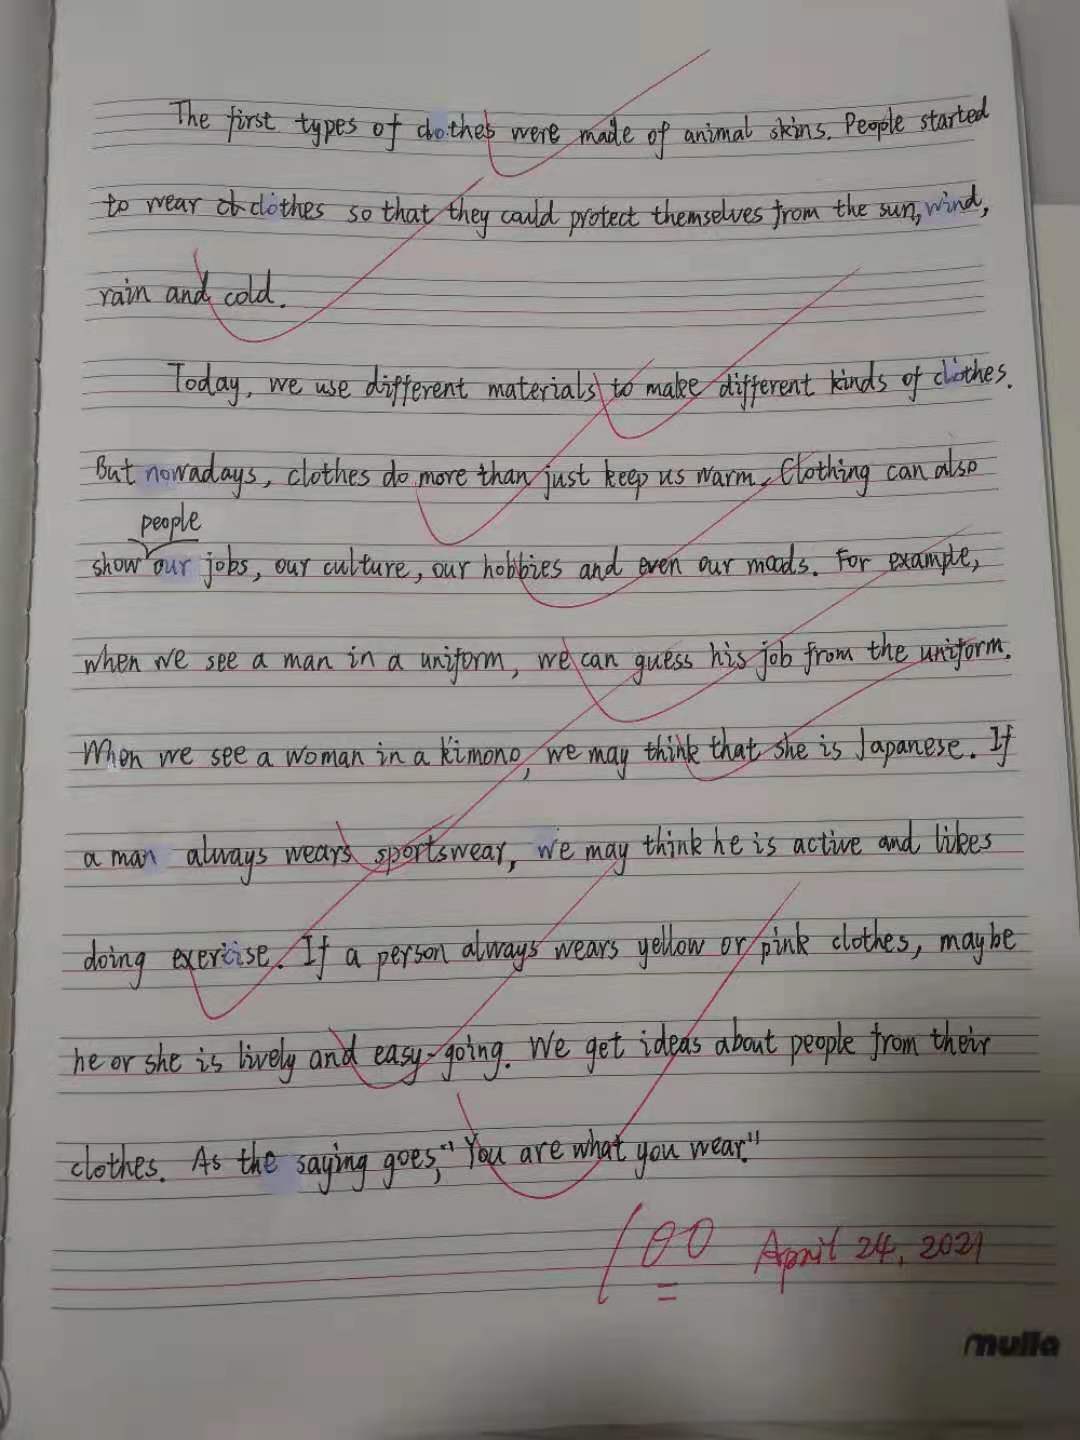 The first types of clothes were made of animal skins. People started
to wear clothes so that they could protect themselves from the sun, wind,
rain and cold.
Today, we use different materials to make different kinds of clothes.
But nowadays, clothes do more than just keep us warm. Clothing can also
people
show our jobs, our culture, our hobbies and even our moods. For example,
when we see a man in a uniform, we can guess his job from the uniform.
When we see a woman in a kimono, we may think that she is Japanese. If
a man always wears sportswear, we may think he is active and likes
doing exercise. If a person always wears yellow or pink clothes, maybe
he or she is lively and easy-going. We get ideas about people from their
clothes. As the saying goes, "You are what you wear."
100 April 24, 2021
mulla